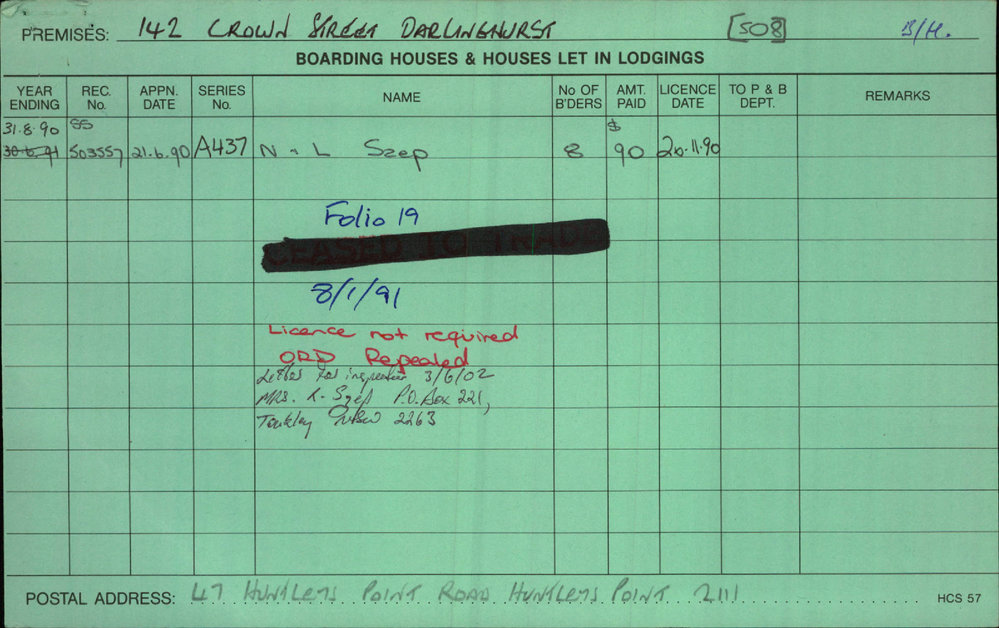 PREMISES: 142 CROWN STREET DARLINGHURST [508] B/H.
BOARDING HOUSES & HOUSES LET IN LODGINGS
YEAR ENDING REC. No. APPN. DATE SERIES No. NAME No OF B'DERS AMT. PAID LICENCE DATE TO P & B DEPT. REMARKS
31.8.90 SS $
30.6.91 503557 21.6.90 A437 N & L Szep 8 90 20.11.90
Folio 19
CEASED TO TRADE
8/1/91
Licence not required
ORD Repealed
Letter for inspection 3/6/02
MRS. K. Szep P.O. Box 221,
Toukley NSW 2263
POSTAL ADDRESS: 47 HUNTLEYS POINT ROAD HUNTLEYS POINT 2111 HCS 57